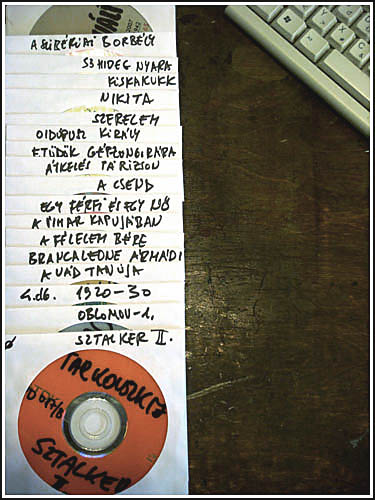 A SZIBÉRIAI BORBÉLY
53 HIDEG NYARA
KISKAKUKK
NIKITA
SZERELEM
OIDIPUSZ KIRÁLY
ETŰDÖK GÉPZONGORÁRA
ÁTKELÉS PÁRIZSON
A CSEND
EGY FÉRFI ÉS EGY NŐ
A VIHAR KAPUJÁBAN
A FÉLELEM BÉRE
BRANCALEONE ÁRMÁDI
A VÁD TANÚJA
1920-30
OBLOMOV-1.
SZTALKER II.
TARKOVSZKIJ
SZTALKER
I.